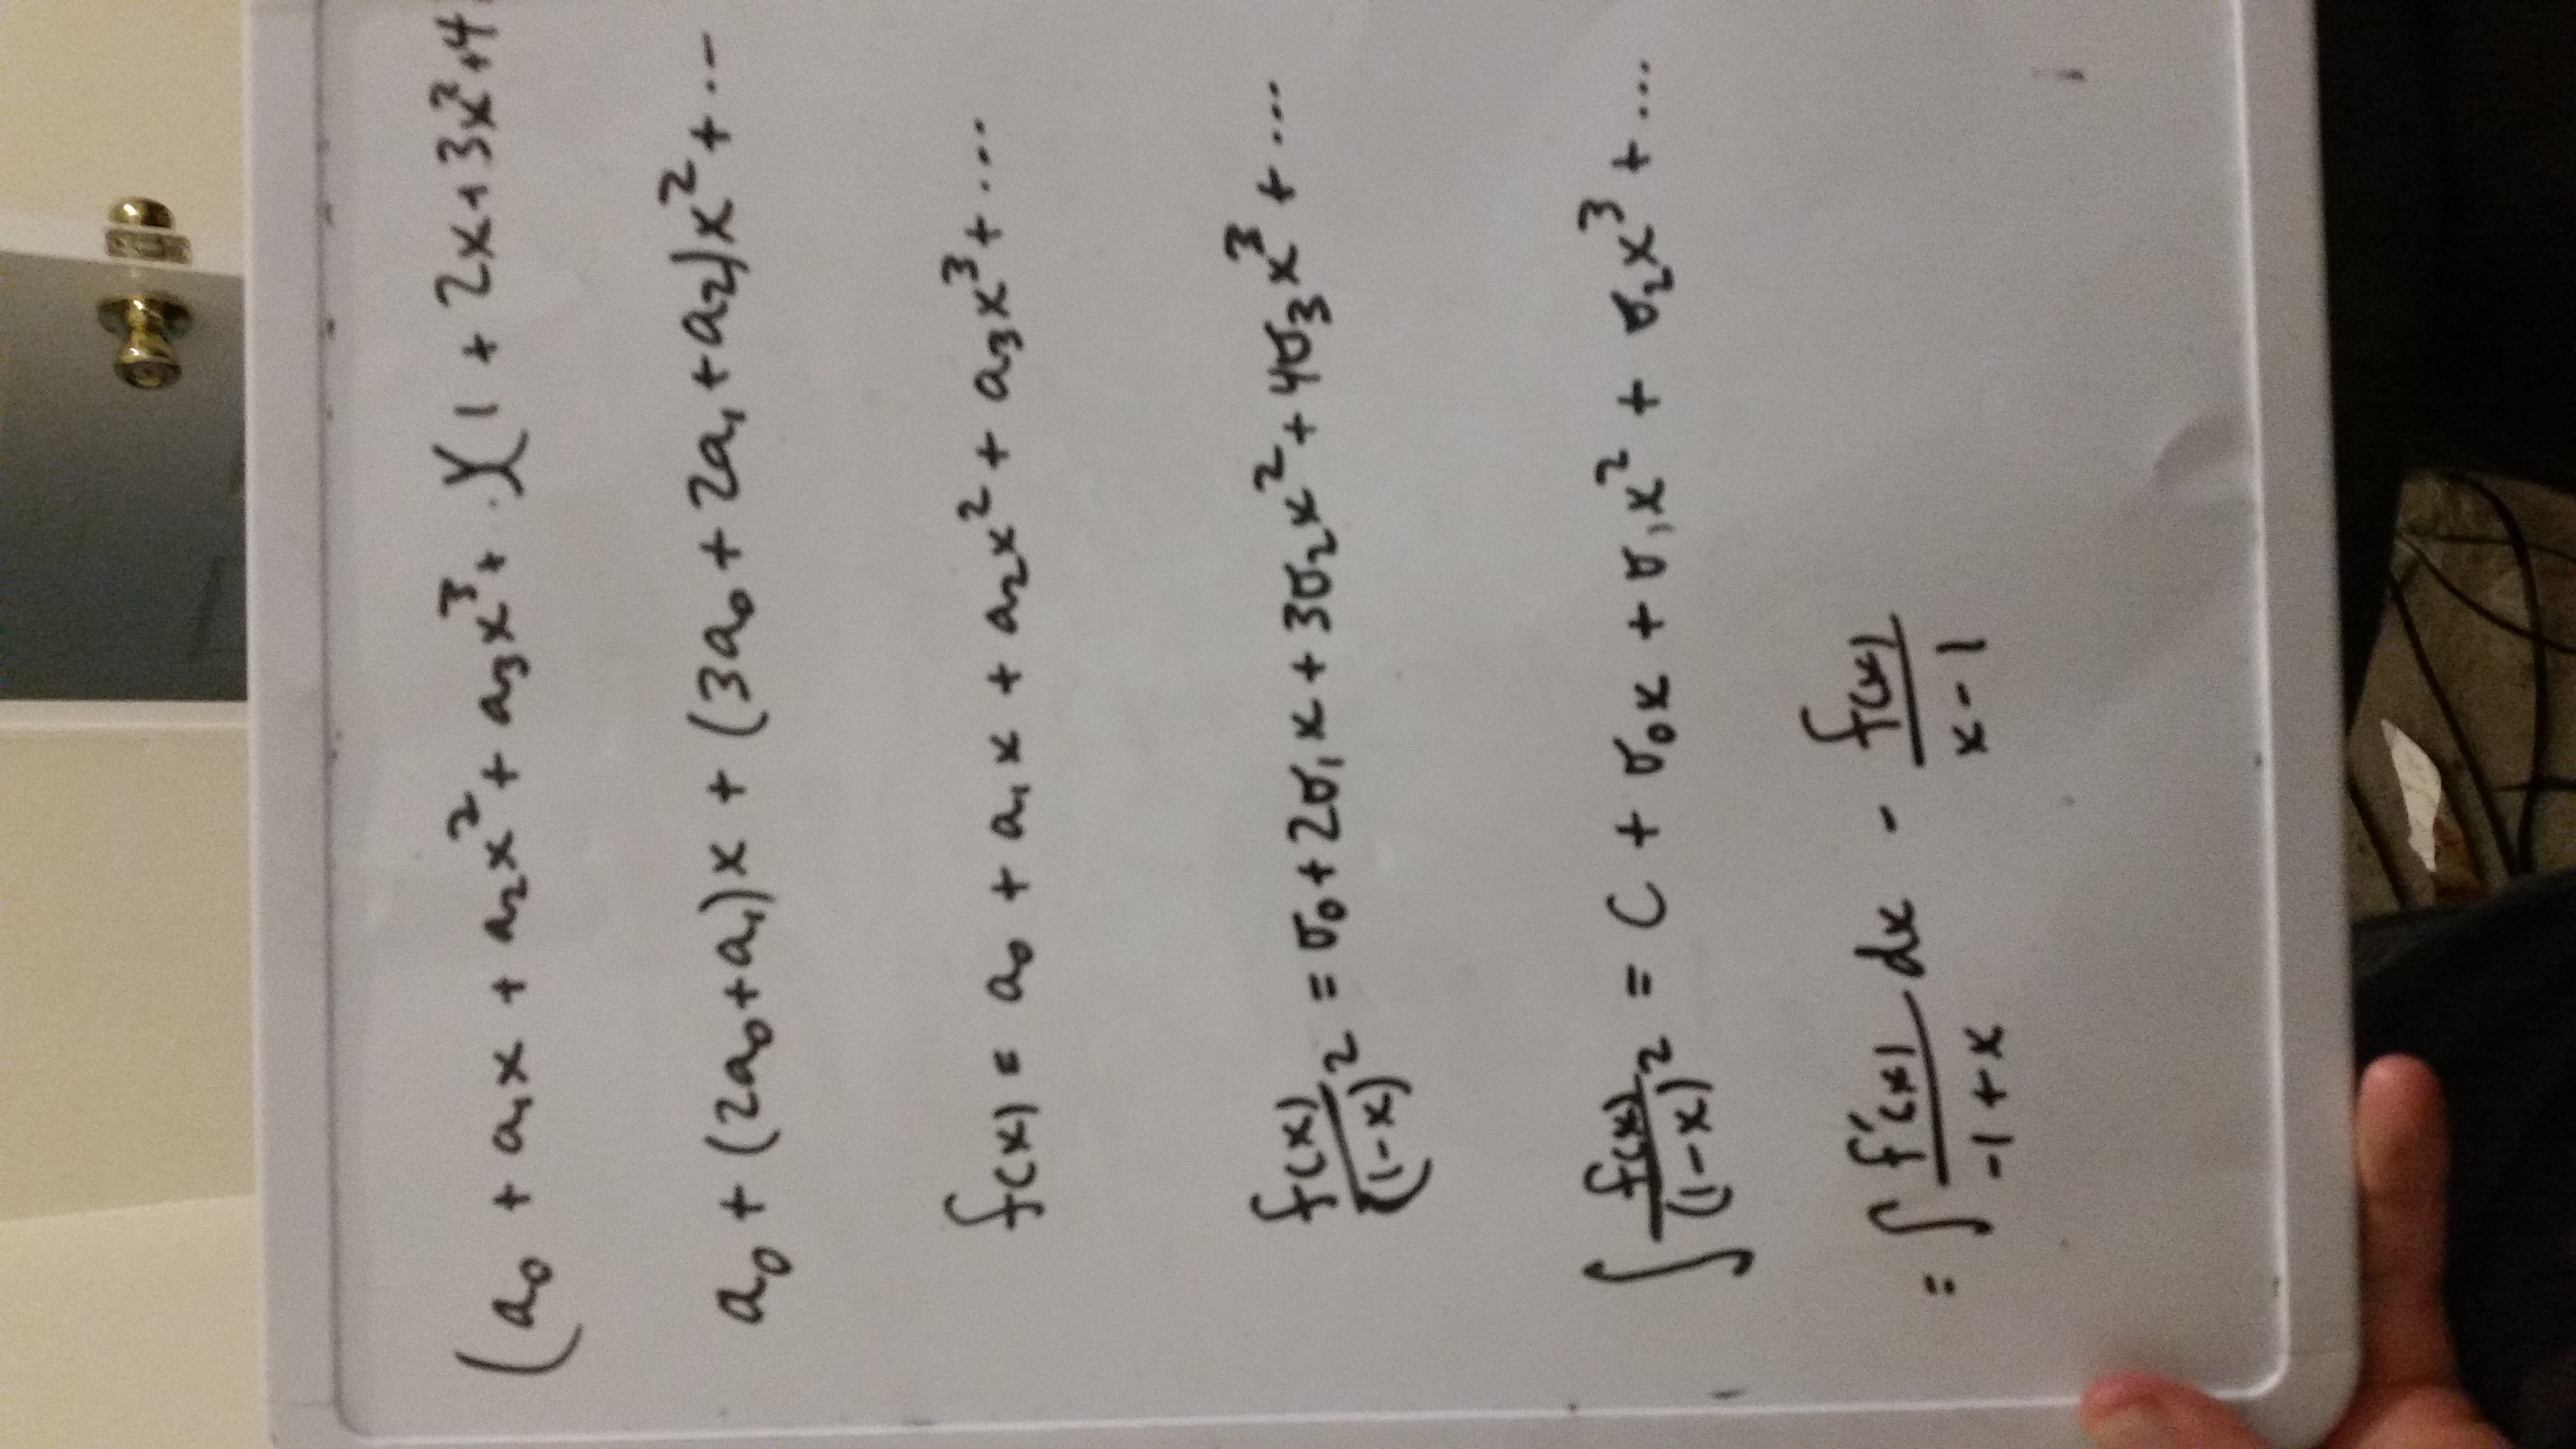 (a₀ + a₁x + a₂x² + a₃x³ + ..)(1 + 2x + 3x² + 4
a₀ + (2a₀+a₁)x + (3a₀ + 2a₁ + a₂)x² + ...
f(x) = a₀ + a₁x + a₂x² + a₃x³ + ...
f(x)/(1-x)² = σ₀ + 2σ₁x + 3σ₂x² + 4σ₃x³ + ...
∫ f(x)/(1-x)² = C + σ₀x + σ₁x² + σ₂x³ + ...
= ∫ f'(x)/(-1+x) dx - f(x)/(x-1)